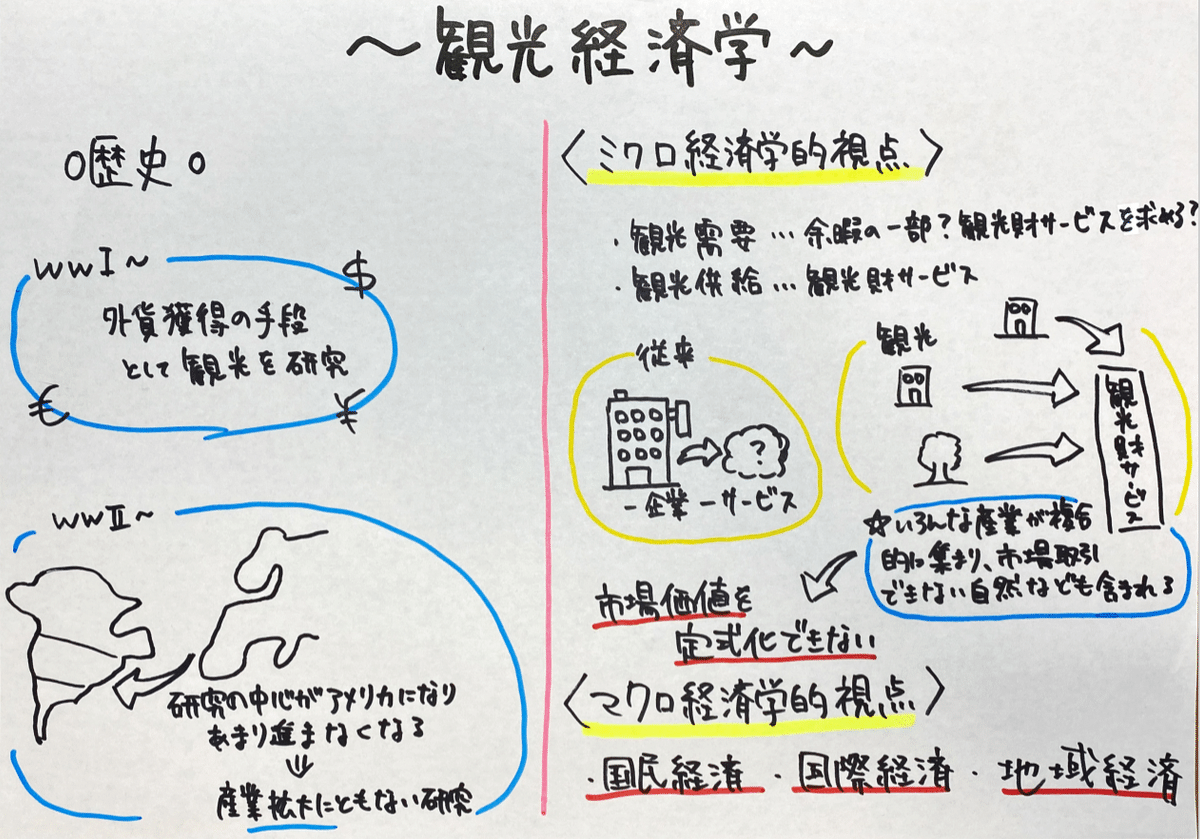 ～観光経済学～
○歴史○
WWⅠ～
$
外貨獲得の手段
として観光を研究
€
¥
WWⅡ～
研究の中心がアメリカになり
あまり進まなくなる
⇓
産業拡大にともない研究
〈ミクロ経済学的視点〉
・観光需要…余暇の一部？観光財サービスを求める？
・観光供給…観光財サービス
従来
?
一企業一サービス
観光
観光財サービス
☆いろんな産業が複合
的に集まり、市場取引
できない自然なども含まれる
市場価値を
定式化できない
〈マクロ経済学的視点〉
・国民経済・国際経済・地域経済